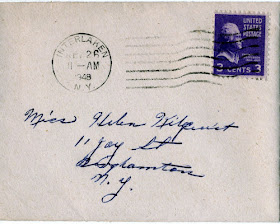 INTERLAKEN
26
11-AM
1948
N.Y.
UNITED STATES
POSTAGE
3 CENTS 3
Miss Helen
11 Jay St
Binghamton
N.Y.